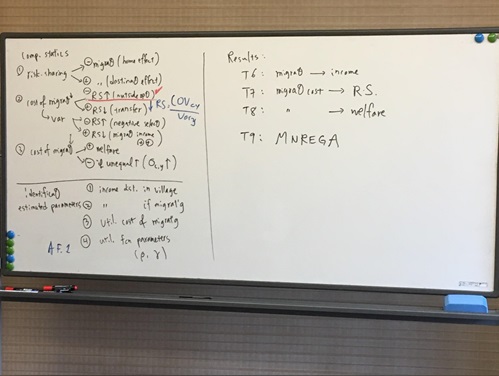 Comp. statics
① risk-sharing
⊖ migra⓪ (home effect)
⊕ 〃 (destina⓪ effect)
⊖ RS↑ (outside op⓪)
② cost of migra⓪↓
⊕ RS↓ (transfer) ↓ RS, (COV c,y / Var y)
↳ var
⊖ RS↑ (negative
⊕ RS↓ (migra⓪ income)
③ cost of migra⓪↓
⊕ welfare
⊖ unequal↑ (σc,y↑)
identifica⓪
estimated parameters
① income dist. in village
② 〃 if migrat'g
③ util. cost of migrat'g
④ util. fcn parameters
(ρ, γ)
AF.2
Results:
T6: migra⓪ → income
T7: migra⓪ cost → R.S.
T8: 〃 → welfare
T9: MNREGA